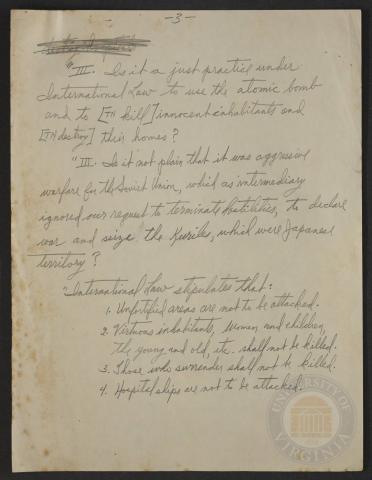 -3-
"III. Is it a just practice under
International Law to use the atomic bomb
and to [TN kill] innocent inhabitants and
[TN destroy] their homes?
"III. Is it not plain that it was aggressive
warfare for the Soviet Union, which as intermediary
ignored our request to terminate hostilities, to declare
war and seize the Kuriles, which were Japanese
territory?
"International Law stipulates that:
1. Unfortified areas are not to be attacked.
2. Virtuous inhabitants, women and children,
the young and old, etc. shall not be killed.
3. Those who surrender shall not be killed.
4. Hospital ships are not to be attacked.
UNIVERSITY OF
VIRGINIA